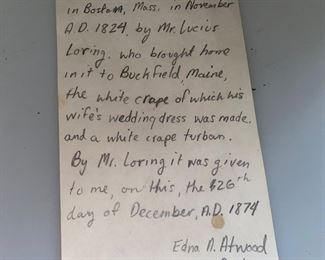 in Boston, Mass. in November
A.D. 1824, by Mr. Lucius
Loring, who brought home
in it to Buckfield, Maine,
the white crape of which his
wife's wedding dress was made,
and a white crape turban.
By Mr. Loring it was given
to me, on this, the 26th
day of December, A.D. 1874
Edna N. Atwood